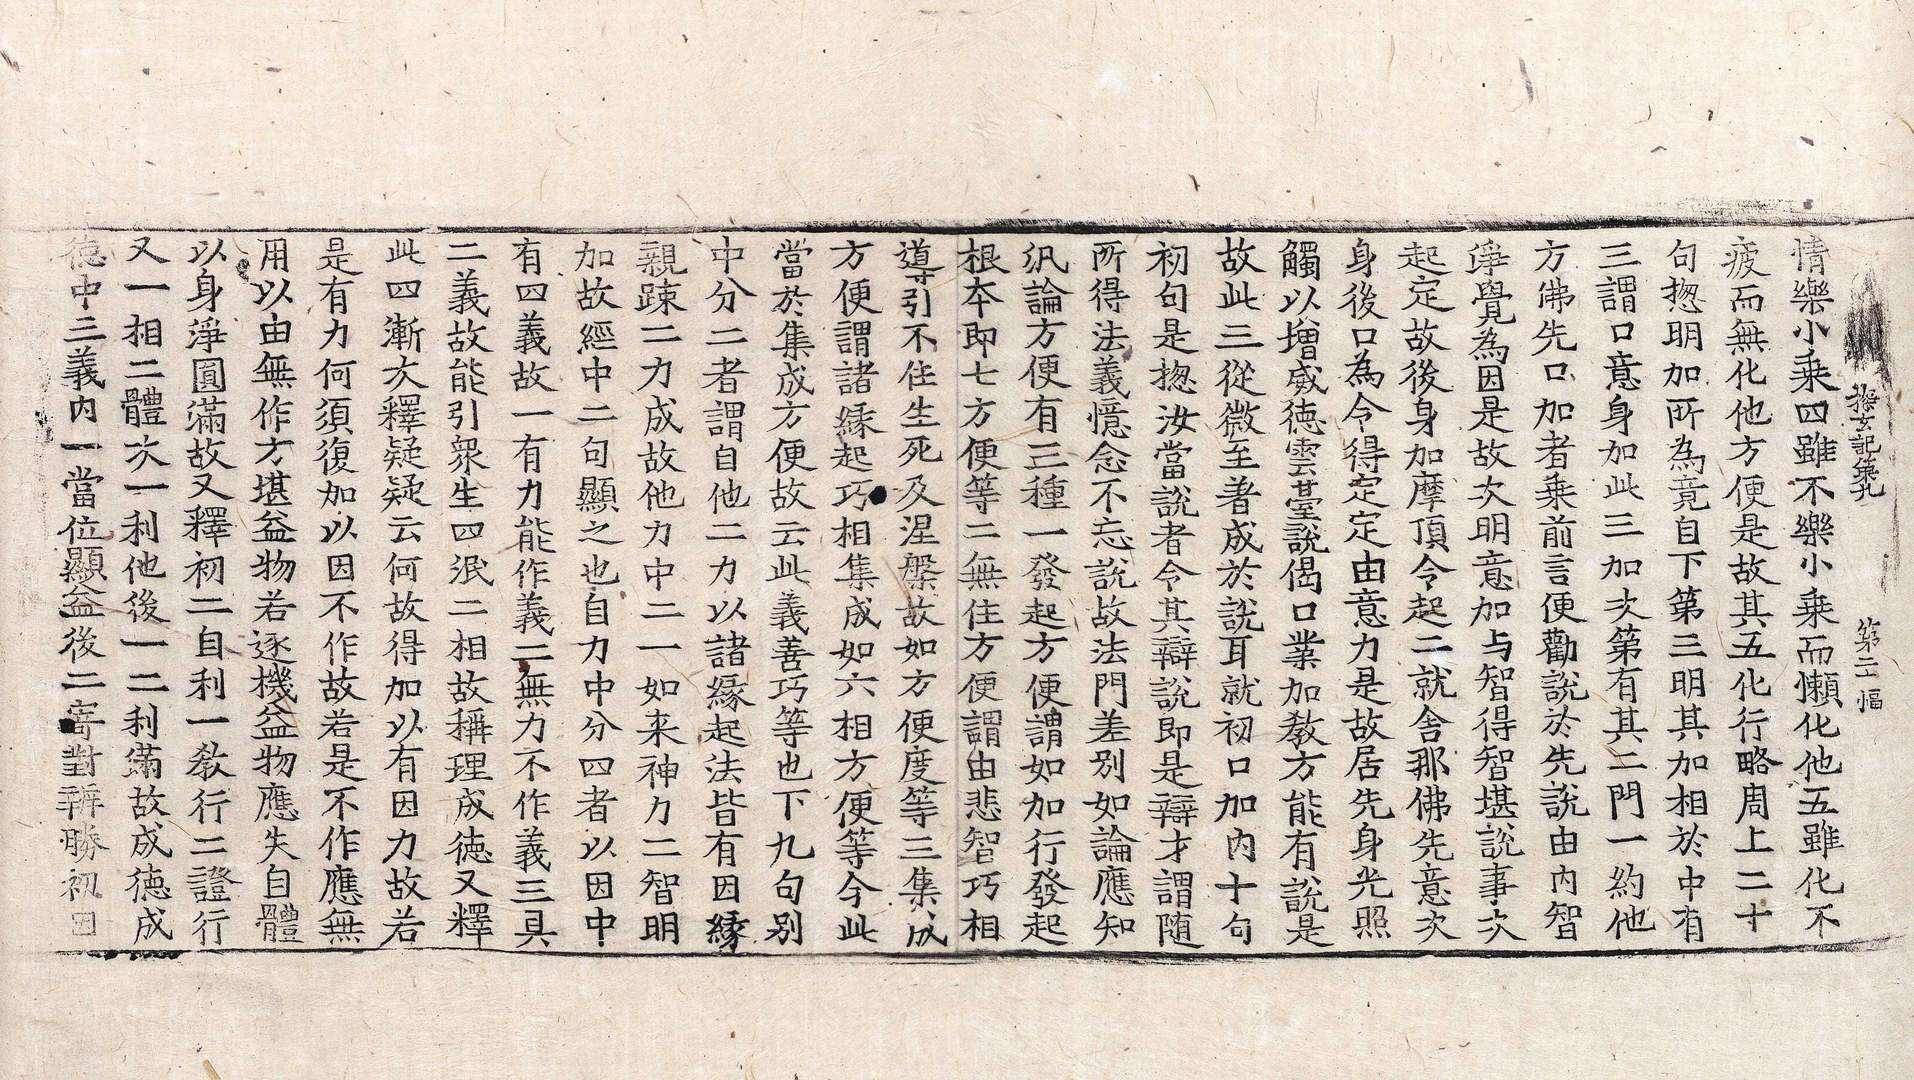 探玄記第九 第二十幅
情樂小乗四雖不樂小乗而懶化他五雖化不
疲而無化他方便是故其五化行略周上二十
句揔明加所為竟自下第三明其加相於中有
三謂口意身加此三加次第有其二門一約他
方佛先口加者乗前言便勸說於先說由内智
淨覺為因是故次明意加与智得智堪說事次
起定故後身加摩頂令起二就舍那佛先意次
身後口為令得定定由意力是故居先身光照
觸以增威德雲臺說偈口業加教方能有說是
故此三從微至著成於說耳就初口加内十句
初句是揔汝當說者令其辯說即是辯才謂随
所得法義憶念不忘說故法門差別如論應知
汎論方便有三種一發起方便謂如加行發起
根夲即七方便等二無住方便謂由悲智巧相
導引不住生死及涅槃故如方便度等三集成
方便謂諸緣起巧相集成如六相方便等今此
當於集成方便故云此義善巧等也下九句別
中分二者謂自他二力以諸緣起法皆有因緣
親踈二力成故他力中二一如来神力二智明
加故經中二句顯之也自力中分四者以因中
有四義故一有力能作義二無力不作義三具
二義故能引衆生四泯二相故稱理成德又釋
此四漸次釋疑疑云何故得加以有因力故若
是有力何須復加以因不作故若是不作應無
用以由無作方堪益物若逐機益物應失自體
以身淨圓滿故又釋初二自利一教行二證行
又一相二體次一利他後一二利滿故成德成
德中三義内一當位顯益後二寄對辨勝初因